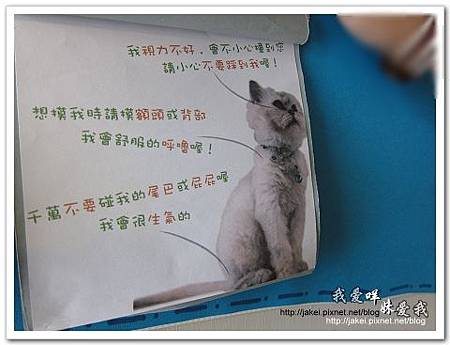 我視力不好，會不小心撞到您
請小心不要踩到我喔！
想摸我時請摸額頭或背部
我會舒服的呼嚕喔！
千萬不要碰我的尾巴或屁屁喔
我會很生氣的
我愛咩
妹愛我
http://jakei.pixnet.net/blog
http://jakei.pixnet.net/blog